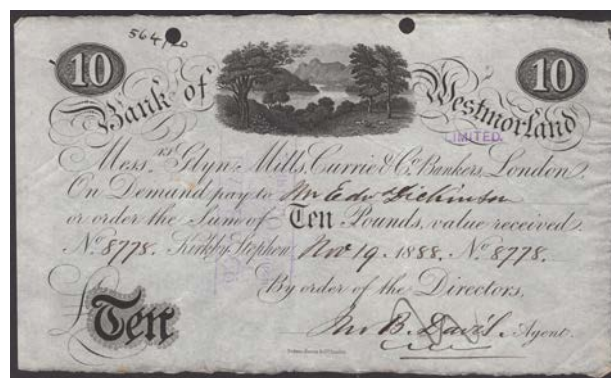 564/20
10 10
Bank of Westmorland
LIMITED.
Mess.rs Glyn, Mills, Currie & Co. Bankers, London.
On Demand pay to Mr Edw Dickinson
or order the Sum of Ten Pounds, value received.
No. 8778. Kirkby Stephen Nov 19. 1888. No. 8778.
By order of the Directors,
£Ten
B. Davis Agent.